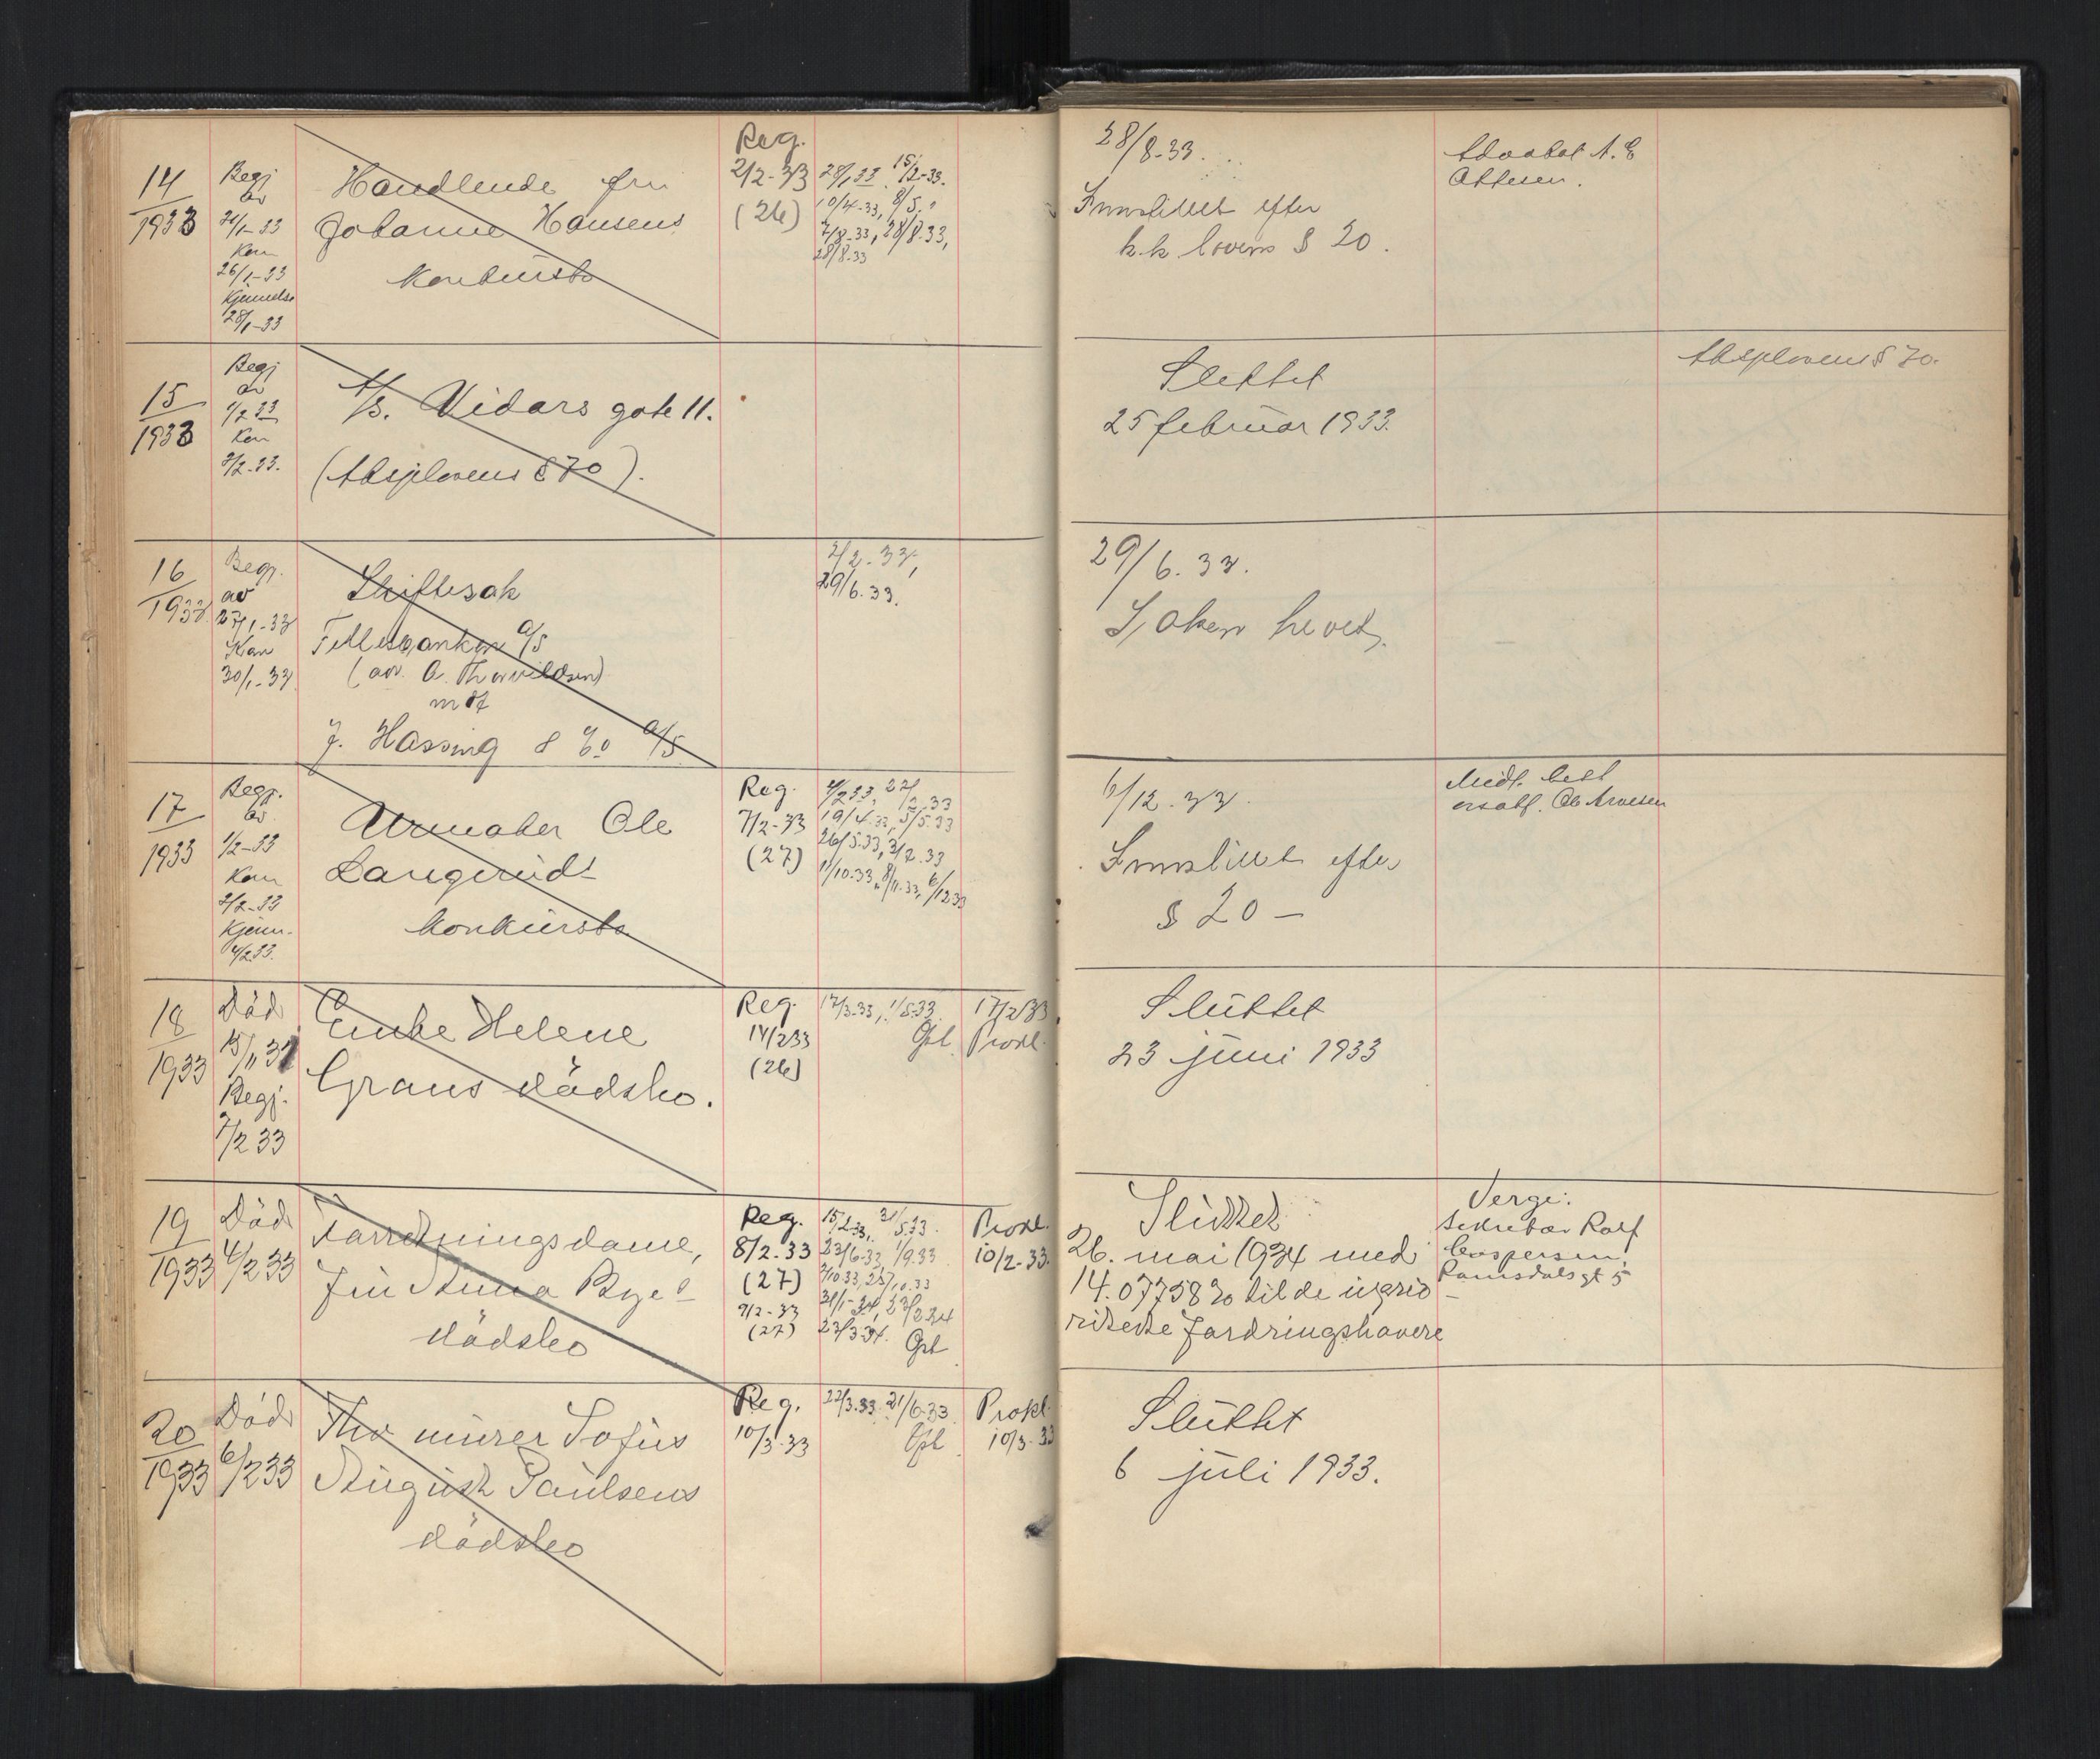 14
1933
Begj
av
24/1-33
Kon
26/1-33
Kjennelse
28/1-33
Handlende fru
Johanne Hansens
konkursbo
Reg.
2/2-33
(26)
28/1 33 15/2-33.
10/4-33, 8/5.
7/8-33, 28/8-33,
28/8-33
28/8-33.
Innstillet efter
k.k. lovens § 20.
Advokat A. E
Ottesen.
15
1933
Begj
av
1/2 33
Kon
2/2-33.
A/S. Vidars gate 11.
(Aksjelovens § 70).
Sluttet
25 februar 1933.
Aksjelovens § 70.
16
1933
Begj.
av
27/1-33
Kon
30/1-33
Skiftesak
Fellesbanken A/S
(adv. C. Thorvildsen)
mot
J. Hassing & Co A/S
2/2-33,
29/6.33.
29/6.33.
Saken hevet.
17
1933
Begj.
av
1/2-33
Kon
2/2-33
Kjenn.
4/2 33.
Urmaker Ole
Langeruds
konkursbo
Reg.
7/2-33
(27)
4/2 33, 22/2.33
19/4.33, 5/5.33
26/5.33, 3/7.33
11/10-33, 8/11-33, 6/12 33
6/12.33.
Innstillet efter
§ 20 —
Midl. best
ersatt. Ole Arnesen
18
1933
Död
15/11 31
Begj.
2/2 33
Enke Helene
Grans dödsbo.
Reg.
14/2 33
(26)
17/3-33, 1/5.33.
Gpl.
17/2 33
Prokl.
Sluttet
23 juni 1933
19
1933
Död
4/2 33
Forretningsdame,
frk Anna Byes
dödsbo
Reg.
8/2-33
(27)
9/2-33
(27)
15/2 33, 31/5.33.
23/6.33, 1/9.33
2/10 33, 25/10.33
31/1-34, 23/2 34
23/3-34. Gpl
Prokl.
10/2-33.
Sluttet
26. mai 1934 med
14.07758 % til de uprio-
riterte fordringshavere
Verge:
Sekretær Rolf
Caspersen,
Ramsdals gt 5
20
1933
Död
6/2 33
Fhv murer Sofus
August Paulsens
dödsbo
Reg.
10/3-33
22/3.33. 21/6-33
Gpl
Prokl.
10/3-33
Sluttet
6 juli 1933.